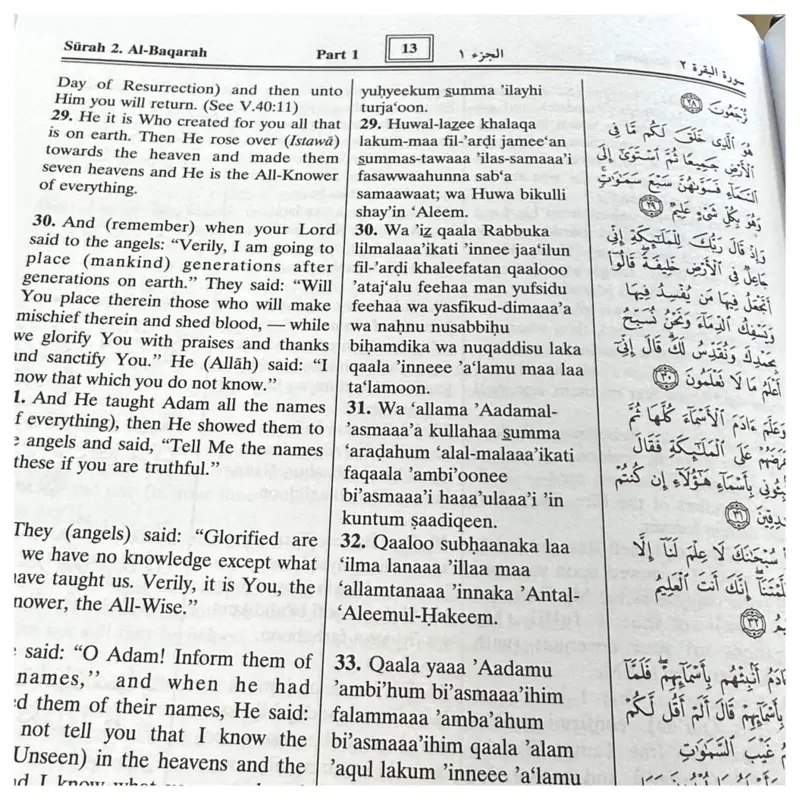 Sūrah 2. Al-Baqarah
Part 1
13
الجزء ١
سورة البقرة ٢
Day of Resurrection) and then unto
Him you will return. (See V.40:11)
29. He it is Who created for you all that
is on earth. Then He rose over (Istawā)
towards the heaven and made them
seven heavens and He is the All-Knower
of everything.
30. And (remember) when your Lord
said to the angels: “Verily, I am going to
place (mankind) generations after
generations on earth.” They said: “Will
You place therein those who will make
mischief therein and shed blood, — while
we glorify You with praises and thanks
and sanctify You.” He (Allāh) said: “I
now that which you do not know.”
1. And He taught Adam all the names
f everything), then He showed them to
angels and said, “Tell Me the names
these if you are truthful.”
They (angels) said: “Glorified are
we have no knowledge except what
ave taught us. Verily, it is You, the
nower, the All-Wise.”
said: “O Adam! Inform them of
names,” and when he had
d them of their names, He said:
not tell you that I know the
Unseen) in the heavens and the
d I know what you
yuḥyeekum summa ’ilayhi
turja‘oon.
29. Huwal-lazee khalaqa
lakum-maa fil-’arḍi jamee‘an
summas-tawaaa ’ilas-samaaa’i
fasawwaahunna sab‘a
samaawaat; wa Huwa bikulli
shay’in ‘Aleem.
30. Wa ’iz qaala Rabbuka
lilmalaaa’ikati ’innee jaa‘ilun
fil-’arḍi khaleefatan qaalooo
’ataj‘alu feehaa man yufsidu
feehaa wa yasfikud-dimaaa’a
wa naḥnu nusabbiḥu
biḥamdika wa nuqaddisu laka
qaala ’inneee ’a‘lamu maa laa
ta‘lamoon.
31. Wa ‘allama ’Aadamal-
’asmaaa’a kullahaa summa
‘araḍahum ‘alal-malaaa’ikati
faqaala ’ambi’oonee
bi’asmaaa’i haaa’ulaaa’i ’in
kuntum ṣaadiqeen.
32. Qaaloo subḥaanaka laa
‘ilma lanaaa ’illaa maa
‘allamtanaaa ’innaka ’Antal-
‘Aleemul-Ḥakeem.
33. Qaala yaaa ’Aadamu
’ambi’hum bi’asmaaa’ihim
falammaaa ’amba’ahum
bi’asmaaa’ihim qaala ’alam
’aqul lakum ’inneee ’a‘lamu
تُرْجَعُونَ ٢٨
هُوَ ٱلَّذِى خَلَقَ لَكُم مَّا فِى
ٱلْأَرْضِ جَمِيعًا ثُمَّ ٱسْتَوَىٰٓ إِلَى
ٱلسَّمَآءِ فَسَوَّىٰهُنَّ سَبْعَ سَمَٰوَٰتٍ
وَهُوَ بِكُلِّ شَىْءٍ عَلِيمٌ ٢٩
وَإِذْ قَالَ رَبُّكَ لِلْمَلَٰٓئِكَةِ إِنِّى
جَاعِلٌ فِى ٱلْأَرْضِ خَلِيفَةً قَالُوٓا۟
أَتَجْعَلُ فِيهَا مَن يُفْسِدُ فِيهَا
وَيَسْفِكُ ٱلدِّمَآءَ وَنَحْنُ نُسَبِّحُ
بِحَمْدِكَ وَنُقَدِّسُ لَكَ قَالَ إِنِّىٓ
أَعْلَمُ مَا لَا تَعْلَمُونَ ٣٠
وَعَلَّمَ ءَادَمَ ٱلْأَسْمَآءَ كُلَّهَا ثُمَّ
عَرَضَهُمْ عَلَى ٱلْمَلَٰٓئِكَةِ فَقَالَ
أَنۢبِـُٔونِى بِأَسْمَآءِ هَٰٓؤُلَآءِ إِن كُنتُمْ
صَٰدِقِينَ ٣١
سُبْحَٰنَكَ لَا عِلْمَ لَنَآ إِلَّا
عَلَّمْتَنَآ إِنَّكَ أَنتَ ٱلْعَلِيمُ
٣٢
ـَٔادَمُ أَنۢبِئْهُم بِأَسْمَآئِهِمْ فَلَمَّآ
بِأَسْمَآئِهِمْ قَالَ أَلَمْ أَقُل لَّكُمْ
غَيْبَ ٱلسَّمَٰوَٰتِ